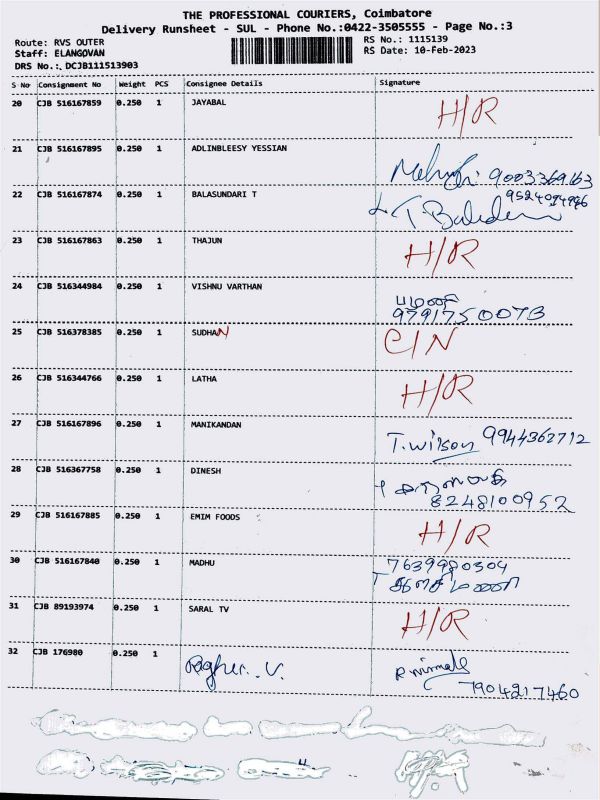 THE PROFESSIONAL COURIERS, Coimbatore
Delivery Runsheet - SUL - Phone No.:0422-3505555 - Page No.:3
Route: RVS OUTER RS No.: 1115139
Staff: ELANGOVAN RS Date: 10-Feb-2023
DRS No.: DCJB111513903
S No Consignment No Weight PCS Consignee Details Signature
20 CJB 516167859 0.250 1 JAYABAL H/R
21 CJB 516167895 0.250 1 ADLINBLEESY YESSIAN 9003369163
22 CJB 516167874 0.250 1 BALASUNDARI T 9524094946
23 CJB 516167863 0.250 1 THAJUN H/R
24 CJB 516344984 0.250 1 VISHNU VARTHAN
9791750073
25 CJB 516378385 0.250 1 SUDHAN C/N
26 CJB 516344766 0.250 1 LATHA H/R
27 CJB 516167896 0.250 1 MANIKANDAN T.wilson 9944362712
28 CJB 516367758 0.250 1 DINESH
8248100952
29 CJB 516167885 0.250 1 EMIM FOODS H/R
30 CJB 516167840 0.250 1 MADHU 7639980304
31 CJB 89193974 0.250 1 SARAL TV H/R
32 CJB 176980 0.250 1 R.nirmala
7904217460